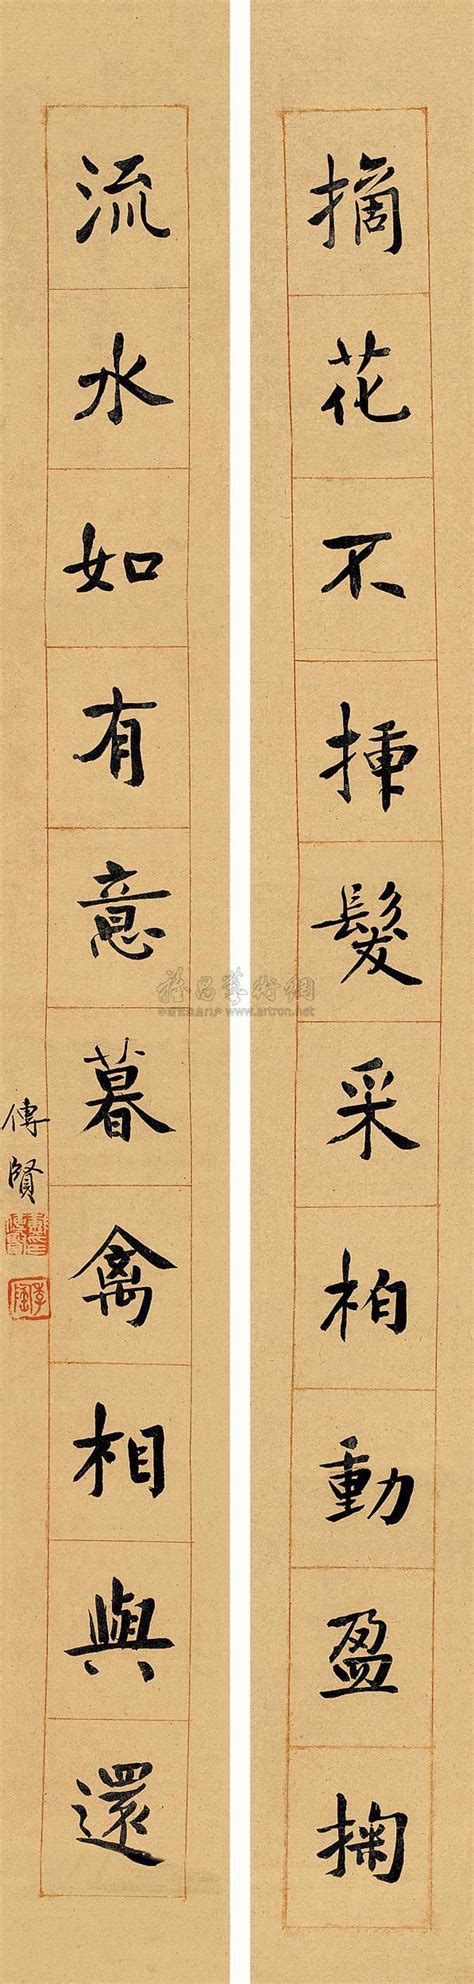 摘花不挿髮采柏動盈掬
流水如有意暮禽相與還
傳賢
季陶
雅昌藝術網
www.artron.net